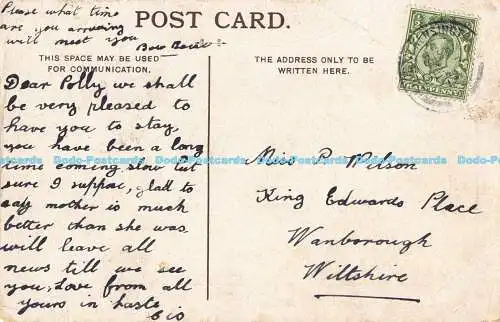 Please what time
are you arriving
will meet you
POST CARD.
THIS SPACE MAY BE USED
FOR COMMUNICATION.
THE ADDRESS ONLY TO BE
WRITTEN HERE.
Dear Polly we shall
be very pleased to
have you to stay,
you have been a long
time coming, slow but
sure I suppose, glad to
say mother is much
better than she was
will leave all
news till we see
you, Love from all
yours in haste
Cis
Miss P Wilson
King Edwards Place
Wanborough
Wiltshire
HALFPENNY
Dodo-Postcards Dodo-Postcards Dodo-Postcards Dodo-Postcards Dodo-Postcards